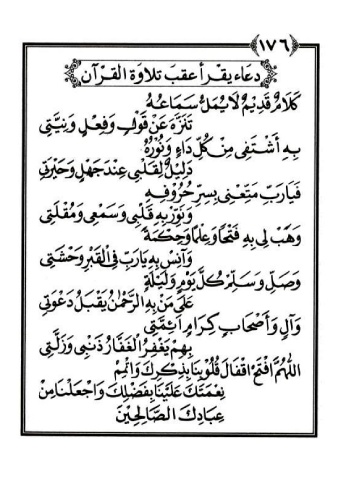 ١٧٦
دعاء يقرأ عقب تلاوة القرآن
كَلَامٌ قَدِيمٌ لَا يُمَلُّ سَمَاعُهُ
تَنَزَّهَ عَنْ قَوْلٍ وَفِعْلٍ وَنِيَّتِي
بِهِ أَشْتَفِي مِنْ كُلِّ دَاءٍ وَنُورُهُ
دَلِيلٌ لِقَلْبِي عِنْدَ جَهْلٍ وَحَيْرَتِي
فَيَارَبِّ مَتِّعْنِي بِسِرِّ حُرُوفِهِ
وَنَوِّرْ بِهِ قَلْبِي وَسَمْعِي وَمُقْلَتِي
وَهَبْ لِي بِهِ فَتْحًا وَعِلْمًا وَحِكْمَةً
وَآنِسْ بِهِ يَارَبِّ فِي الْقَبْرِ وَحْشَتِي
وَصَلِّ وَسَلِّمْ كُلَّ يَوْمٍ وَلَيْلَةٍ
عَلَى مَنْ بِهِ الرَّحْمٰنُ يَقْبَلُ دَعْوَتِي
وَآلٍ وَأَصْحَابٍ كِرَامٍ أَئِمَّتِي
بِهِمْ يَغْفِرُ الْغَفَّارُ ذَنْبِي وَزَلَّتِي
اللّٰهُمَّ افْتَحْ اَقْفَالَ قُلُوبِنَا بِذِكْرِكَ وَاتْمِمْ
نِعْمَتَكَ عَلَيْنَا بِفَضْلِكَ وَاجْعَلْنَا مِنْ
عِبَادِكَ الصَّالِحِيْنَ